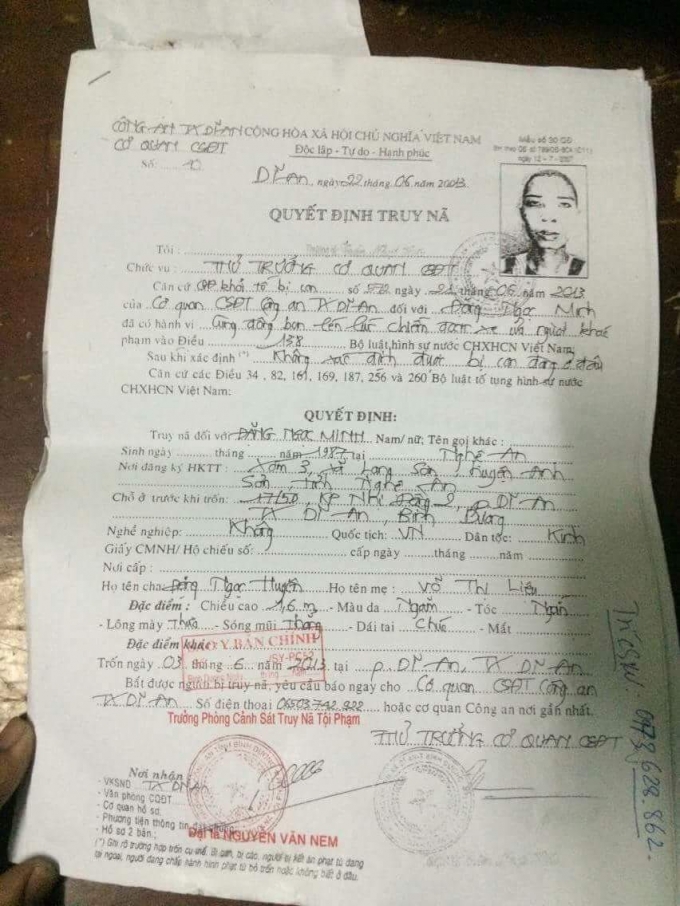 CÔNG AN TX DĨ AN CỘNG HÒA XÃ HỘI CHỦ NGHĨA VIỆT NAM
CƠ QUAN CSĐT Độc lập - Tự do - Hạnh phúc
Số
Dĩ An, ngày 22 tháng 06 năm 2013
QUYẾT ĐỊNH TRUY NÃ
Tôi :
Chức vụ : THỦ TRƯỞNG CƠ QUAN CSĐT
Căn cứ QĐ khởi tố bị can số ngày tháng 06 năm 2013
của Cơ quan CSĐT Công an TX Dĩ An đối với Đặng Ngọc Minh
đã có hành vi
phạm vào Điều 138 Bộ luật hình sự nước CHXHCN Việt Nam
Sau khi xác định (*) Không xác định được bị can đang ở đâu
Căn cứ các Điều 34 , 82, 161, 169, 187, 256 và 260 Bộ luật tố tụng hình sự nước
CHXHCN Việt Nam:
QUYẾT ĐỊNH:
Truy nã đối với ĐẶNG NGỌC MINH Nam/ nữ; Tên gọi khác :
Sinh ngày tháng năm 1987 tại Nghệ An
Nơi đăng ký HKTT : Xóm 3, xã Lạng Sơn, Huyện Anh
Sơn, tỉnh Nghệ An
Chỗ ở trước khi trốn: 17/50, KP Nhị Đồng 2, p. Dĩ An
TX Dĩ An, Bình Dương
Nghề nghiệp: Không Quốc tịch: VN Dân tộc: Kinh
Giấy CMNH/ Hộ chiếu số: cấp ngày tháng năm
Nơi cấp :
Họ tên cha: Đặng Ngọc Huyên Họ tên mẹ : Võ Thị Liệu
Đặc điểm : Chiều cao 1,6 m - Màu da Ngăm - Tóc Ngắn
- Lông mày Thưa - Sóng mũi Thẳng - Dái tai Chúc - Mắt
Đặc điểm khác
SAO Y BẢN CHÍNH
SY-PC52
Trốn ngày 03 tháng 6 năm 2013 tại p. Dĩ An, TX Dĩ An
Bắt được người bị truy nã, yêu cầu báo ngay cho Cơ quan CSĐT Công an
TX Dĩ An Số điện thoại 06503.742.222 hoặc cơ quan Công an nơi gần nhất.
Trưởng Phòng Cảnh Sát Truy Nã Tội Phạm
THỦ TRƯỞNG CƠ QUAN CSĐT
Nơi nhận
- VKSND TX Dĩ An
- Văn phòng CQĐT
- Cơ quan hồ sơ
- Phương tiện thông tin đại chúng
- Hồ sơ 2 bản ;
Đại tá NGUYỄN VĂN NEM
(*) Ghi rõ trường hợp trốn cụ thể,
tại ngoại, người đang chấp hành hình phạt tù bỏ trốn hoặc không biết ở đâu.
0978.628.862